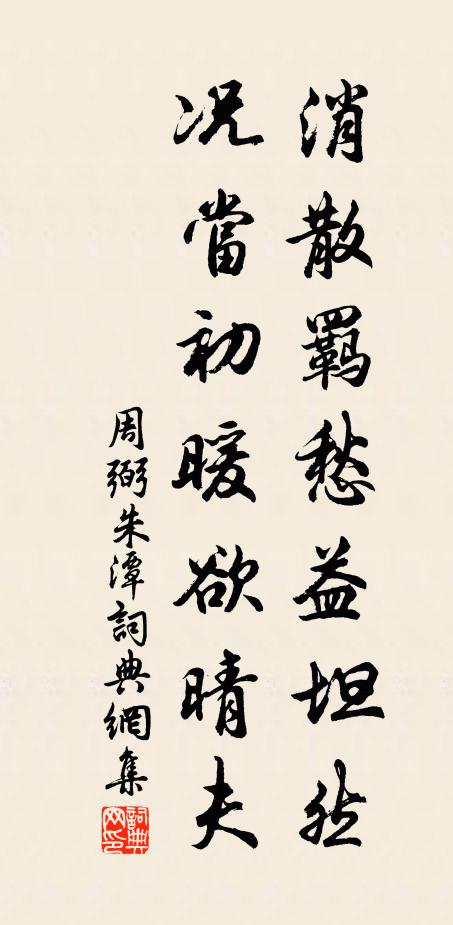 消散羇愁益坦然
况當初暖欲晴天
周弼朱潭詞典網集
詞典网印